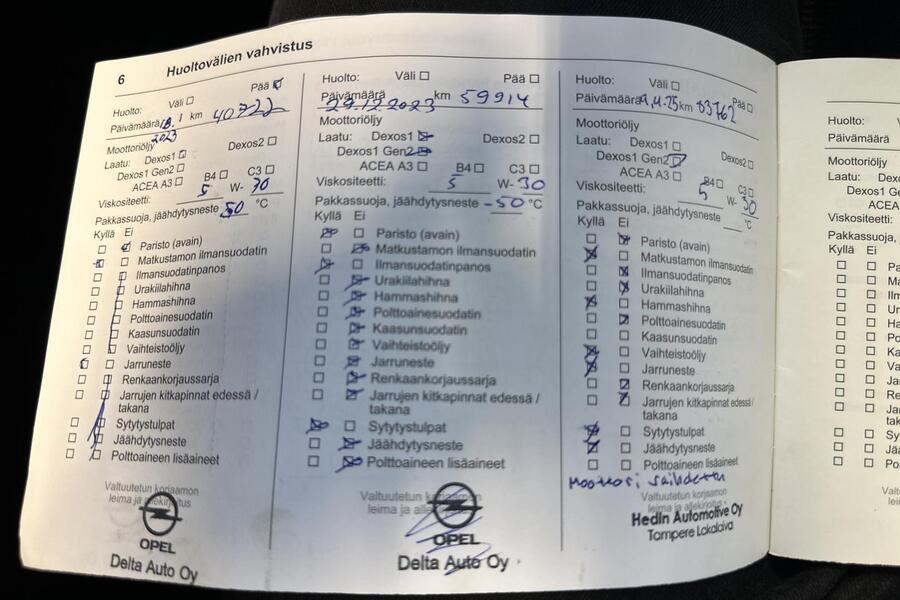 6 Huoltovälien vahvistus
Huolto: Väli Pää
Päivämäärä 18. 1 km 40722
2023
Moottoriöljy
Laatu: Dexos1 Dexos2
Dexos1 Gen2
ACEA A3 B4 C3
Viskositeetti: 5 W- 30
Pakkassuoja, jäähdytysneste 50 °C
Kyllä Ei
Paristo (avain)
Matkustamon ilmansuodatin
Ilmansuodatinpanos
Urakiilahihna
Hammashihna
Polttoainesuodatin
Kaasunsuodatin
Vaihteistoöljy
Jarruneste
Renkaankorjaussarja
Jarrujen kitkapinnat edessä /
takana
Sytytystulpat
Jäähdytysneste
Polttoaineen lisäaineet
Valtuutetun korjaamon
leima ja allekirjoitus
OPEL
Delta Auto Oy
Huolto: Väli Pää
Päivämäärä 29.12.2023 km 59914
Moottoriöljy
Laatu: Dexos1 Dexos2
Dexos1 Gen2
ACEA A3 B4 C3
Viskositeetti: 5 W- 30
Pakkassuoja, jäähdytysneste -50 °C
Kyllä Ei
Paristo (avain)
Matkustamon ilmansuodatin
Ilmansuodatinpanos
Urakiilahihna
Hammashihna
Polttoainesuodatin
Kaasunsuodatin
Vaihteistoöljy
Jarruneste
Renkaankorjaussarja
Jarrujen kitkapinnat edessä /
takana
Sytytystulpat
Jäähdytysneste
Polttoaineen lisäaineet
Valtuutetun korjaamon
leima ja
OPEL
Delta Auto Oy
Huolto: Väli Pää
Päivämäärä km
Moottoriöljy
Laatu: Dexos1 Dexos2
Dexos1 Gen2
ACEA A3 B4 C3
Viskositeetti: 5 W- 30
Pakkassuoja, jäähdytysneste °C
Kyllä Ei
Paristo (avain)
Matkustamon ilmansuodatin
Ilmansuodatinpanos
Urakiilahihna
Hammashihna
Polttoainesuodatin
Kaasunsuodatin
Vaihteistoöljy
Jarruneste
Renkaankorjaussarja
Jarrujen kitkapinnat edessä /
takana
Sytytystulpat
Jäähdytysneste
Polttoaineen lisäaineet
Valtuutetun korjaamon
leima ja allekirjoitus
Hedin Automotive Oy
Tampere Lakalaiva
Huolto:
Päivämäärä
Moottoriöljy
Laatu: Dexos
Dexos1 Ge
ACEA
Viskositeetti:
Pakkassuoja,
Kyllä Ei